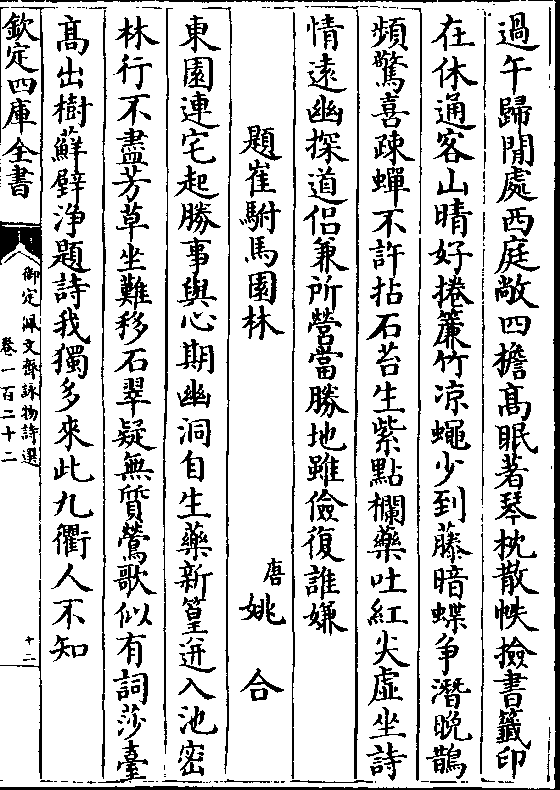 過午歸閒處西庭敞四檐髙眠著琴枕散帙撿書籤印
在休通客山晴好捲簾竹凉蠅少到藤暗蝶争潛晩鵲
頻驚喜疎蟬不許拈石苔生紫點欄藥吐紅尖虚坐詩
情逺幽探道侶兼所營當勝地雖儉復誰嫌
題崔駙馬園林
唐姚合
東園連宅起勝事與心期幽洞自生藥新篁迸入池密
林行不盡芳草坐難移石翠疑無質鶯歌似有詞莎臺
髙出樹蘚壁浄題詩我獨多來此九衢人不知
欽定四庫全書
御定佩文齋詠物詩選
卷一百二十二
十二